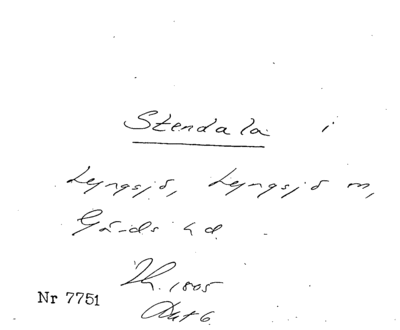 Stendala i
Lyngsjö, Lyngsjö m,
Gärds hd.
Th. 1805
Akt 6.
Nr 7751